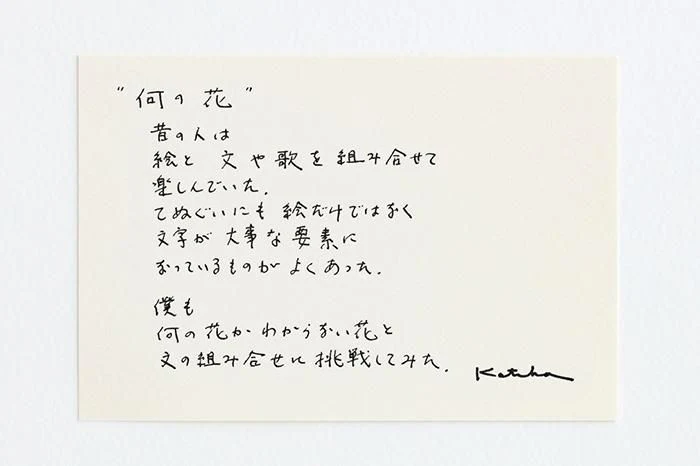 "何の花"
昔の人は
絵と 文や歌を組み合せて
楽しんでいた.
てぬぐいにも 絵だけではなく
文字が 大事な要素に
なっているものが よくあった.
僕も
何の花か わからない花と
文の組み合せに挑戦してみた.